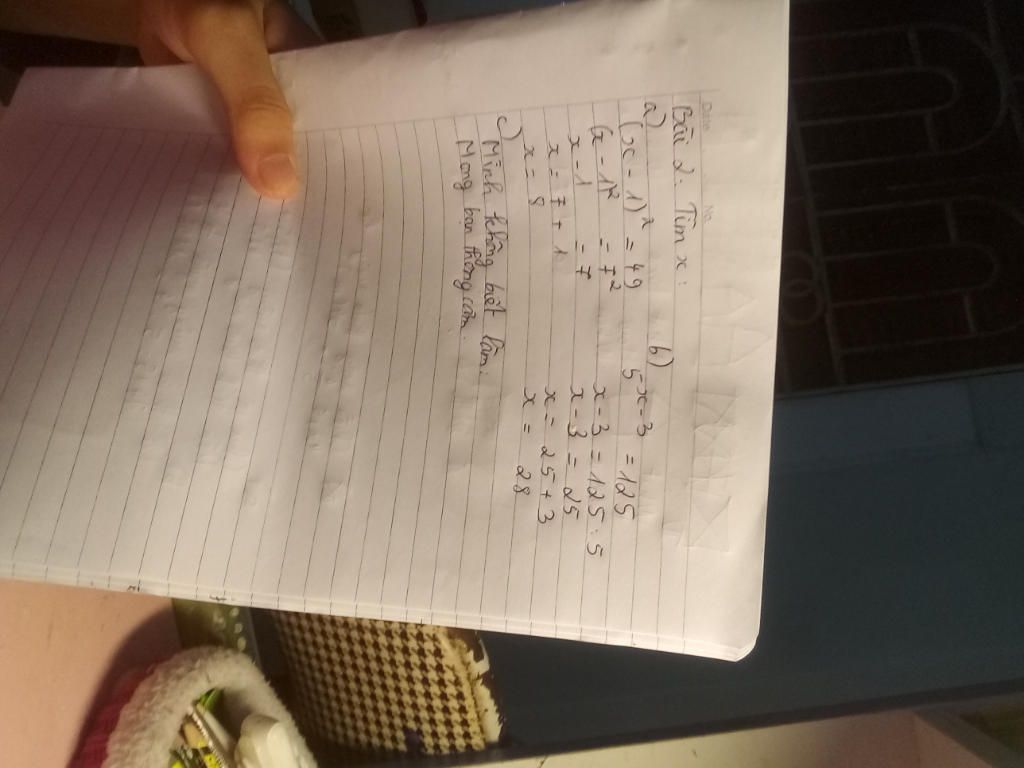 Date No.
Bài 2. Tìm x:
a) (x - 1)² = 49
(x - 1² = 7²
x - 1 = 7
x = 7 + 1
x = 8
b) 5 x-3 = 125
x - 3 = 125 : 5
x - 3 = 25
x = 25 + 3
x = 28
c) Mình không biết làm.
Mong bạn thông cảm.